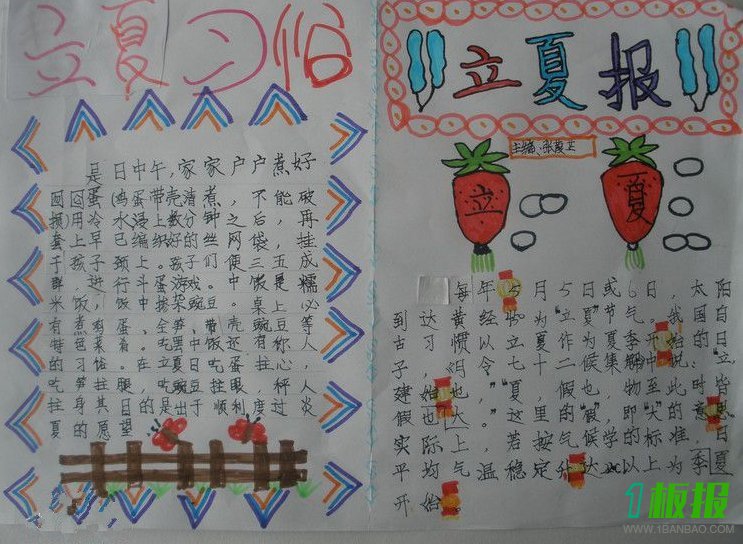 立夏习俗
是日中午,家家户户煮好
囫囵蛋(鸡蛋带壳清煮,不能破
损)用冷水浸上数分钟之后,再
套上早已编织好的丝网袋,挂
于孩子颈上。孩子们便三五成
群,进行斗蛋游戏。中饭是糯
米饭,饭中掺杂豌豆。桌上必
有煮鸡蛋、全笋、带壳豌豆等
特色菜肴。吃罢中饭还有称人
的习俗。在立夏日吃蛋拄心,
吃笋拄腿,吃豌豆拄眼,秤人
拄身其目的是出于顺利度过炎
夏的愿望
立夏报
主编:张
立
夏
每年5月5日或6日,太阳
到达黄经 为"立夏"节气。 国自
古习惯以立 为夏季开始的日
子,《月令七十二候集解中说:"立,
建始也,"夏,假也,物至此时皆
假大也。"这里的"假,即"大"的意思
实际上,若按气候学的标准,日
平均气温稳定升达 以上为夏季
开始。
1板报
WWW.1BANBAO.COM